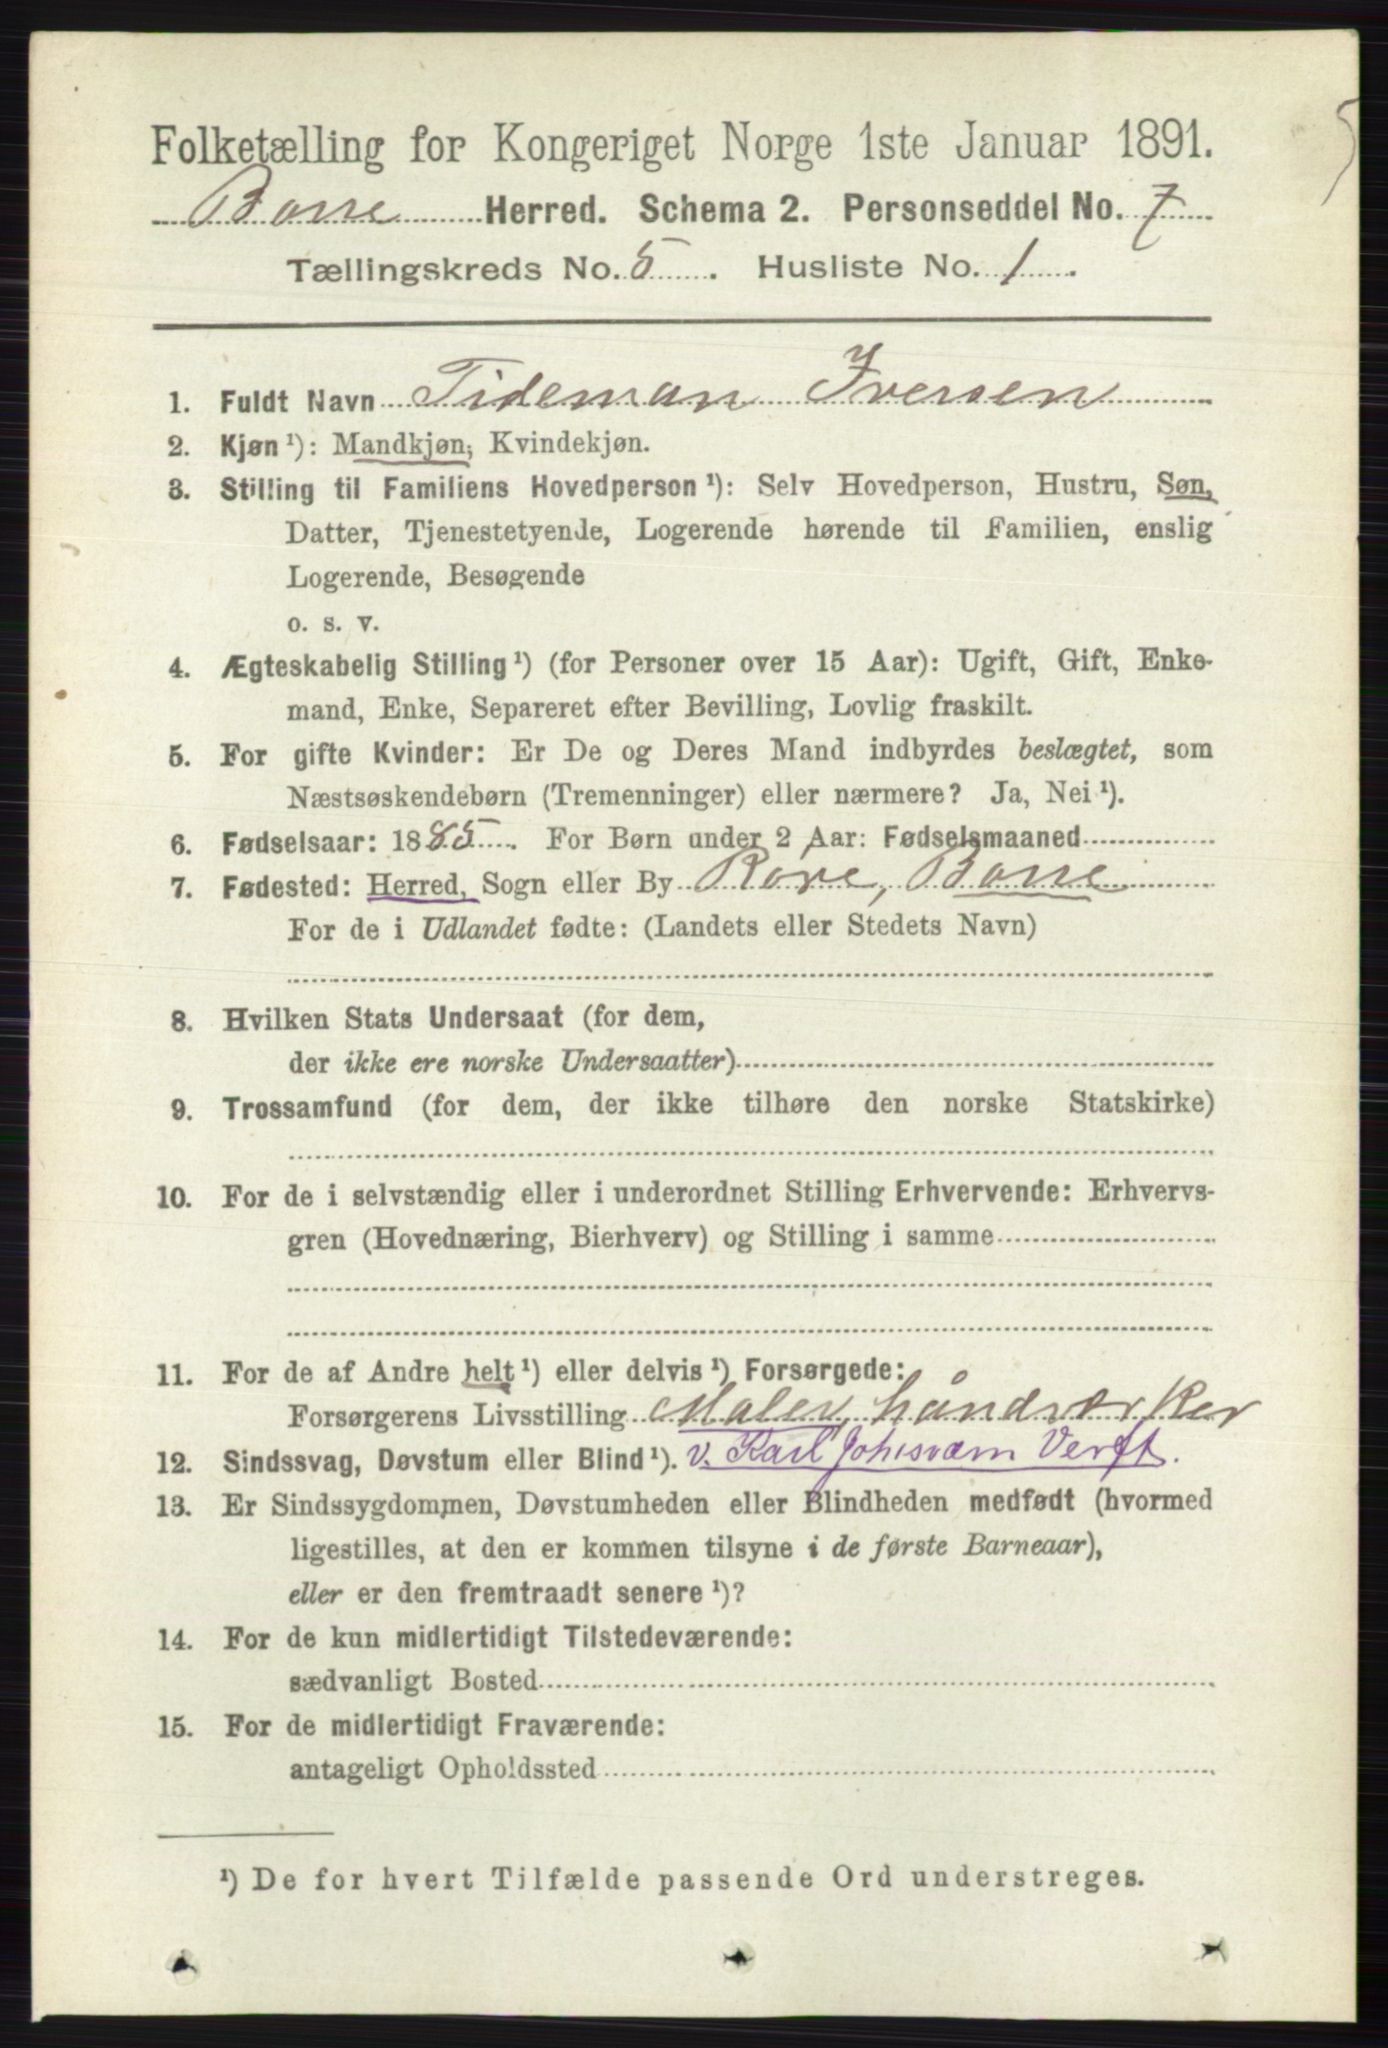 Folketælling for Kongeriget Norge 1ste Januar 1891.
Borre Herred. Schema 2. Personseddel No. 7
Tællingskreds No. 5. Husliste No. 1.
1. Fuldt Navn Tideman Iversen
2. Kjøn¹): Mandkjøn, Kvindekjøn.
3. Stilling til Familiens Hovedperson¹): Selv Hovedperson, Hustru, Søn,
Datter, Tjenestetyende, Logerende hørende til Familien, enslig
Logerende, Besøgende
o. s. v.
4. Ægteskabelig Stilling¹) (for Personer over 15 Aar): Ugift, Gift, Enke-
mand, Enke, Separeret efter Bevilling, Lovlig fraskilt.
5. For gifte Kvinder: Er De og Deres Mand indbyrdes beslægtet, som
Næstsøskendebørn (Tremenninger) eller nærmere? Ja, Nei¹).
6. Fødselsaar: 1885. For Børn under 2 Aar: Fødselsmaaned
7. Fødested: Herred, Sogn eller By Rore, Borre
For de i Udlandet fødte: (Landets eller Stedets Navn)
8. Hvilken Stats Undersaat (for dem,
der ikke ere norske Undersaatter)
9. Trossamfund (for dem, der ikke tilhøre den norske Statskirke)
10. For de i selvstændig eller i underordnet Stilling Erhvervende: Erhvervs-
gren (Hovednæring, Bierhverv) og Stilling i samme
11. For de af Andre helt¹) eller delvis¹) Forsørgede:
Forsørgerens Livsstilling Maler, håndværker
12. Sindssvag, Døvstum eller Blind¹). v. Karl Johisværn Verft.
13. Er Sindssygdommen, Døvstumheden eller Blindheden medfødt (hvormed
ligestilles, at den er kommen tilsyne i de første Barneaar),
eller er den fremtraadt senere¹)?
14. For de kun midlertidigt Tilstedeværende:
sædvanligt Bosted
15. For de midlertidigt Fraværende:
antageligt Opholdssted
¹) De for hvert Tilfælde passende Ord understreges.